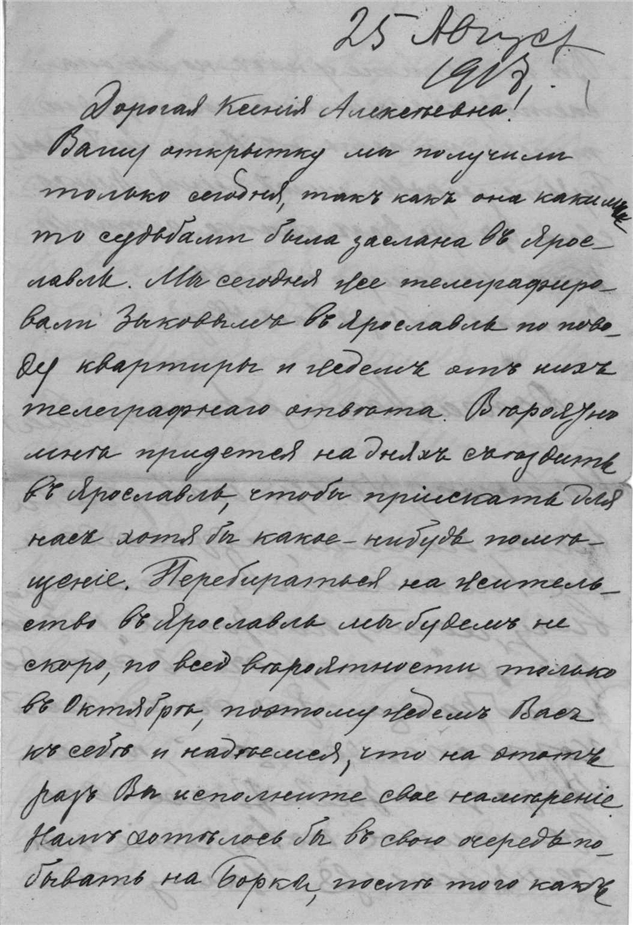 25 Август
1917 г.
Дорогая Ксенія Алексѣевна!
Вашу открытку мы получили
только сегодня, такъ какъ она какими
то судьбами была заслана въ Ярос-
лавль. Мы сегодня же телеграфиро-
вали Зыковымъ въ Ярославль по пово-
ду квартиры и ждемъ отъ нихъ
телеграфнаго отвѣта. Вѣроятно
мнѣ придется на дняхъ съѣздить
въ Ярославль, чтобы пріискать для
насъ хотя бы какое-нибудь помѣ-
щеніе. Перебираться на житель-
ство въ Ярославль мы будемъ не
скоро, по всей вѣроятности только
въ Октябрѣ, поэтому ждемъ Васъ
къ себѣ и надѣемся, что на этотъ
разъ Вы исполните свое намѣреніе.
Намъ хотѣлось бы въ свою очередь по-
бывать на Боркѣ, послѣ того какъ